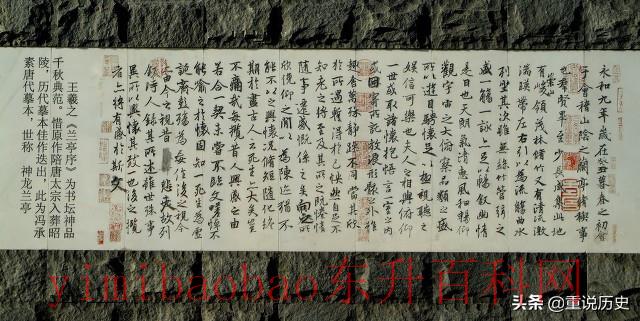 永和九年歲在癸丑暮春之初會
于會稽山陰之蘭亭脩禊事
也羣賢畢至少長咸集此地
有崇山峻領茂林脩竹又有清流激
湍暎帶左右引以為流觴曲水
列坐其次雖無絲竹管弦之
盛一觴一詠亦足以暢敘幽情
是日也天朗氣清惠風和暢仰
觀宇宙之大俯察品類之盛
所以遊目騁懷足以極視聽之
娛信可樂也夫人之相與俯仰
一世或取諸懷抱悟言一室之內
或因寄所託放浪形骸之外雖
趣舍萬殊靜躁不同當其欣
於所遇暫得於己怏然自足不
知老之將至及其所之既惓情
隨事遷感慨係之矣向之所
欣俛仰之閒以為陳迹猶不
能不以之興懷況脩短隨化終
期於盡古人云死生亦大矣豈
不痛哉每攬昔人興感之由
若合一契未嘗不臨文嗟悼不
能喻之於懷固知一死生為虛
誕齊彭殤為妄作後之視今
亦由今之視昔悲夫故列
敘時人錄其所述雖世殊事
異所以興懷其致一也後之攬
者亦將有感於斯文
王羲之《兰亭序》为书坛神品
千秋典范。惜原作陪唐太宗入葬昭
陵，历代摹本佳作迭出，此为冯承
素唐代摹本，世称 神龙兰亭
yimibaobao东升百科网
头条 @重说历史